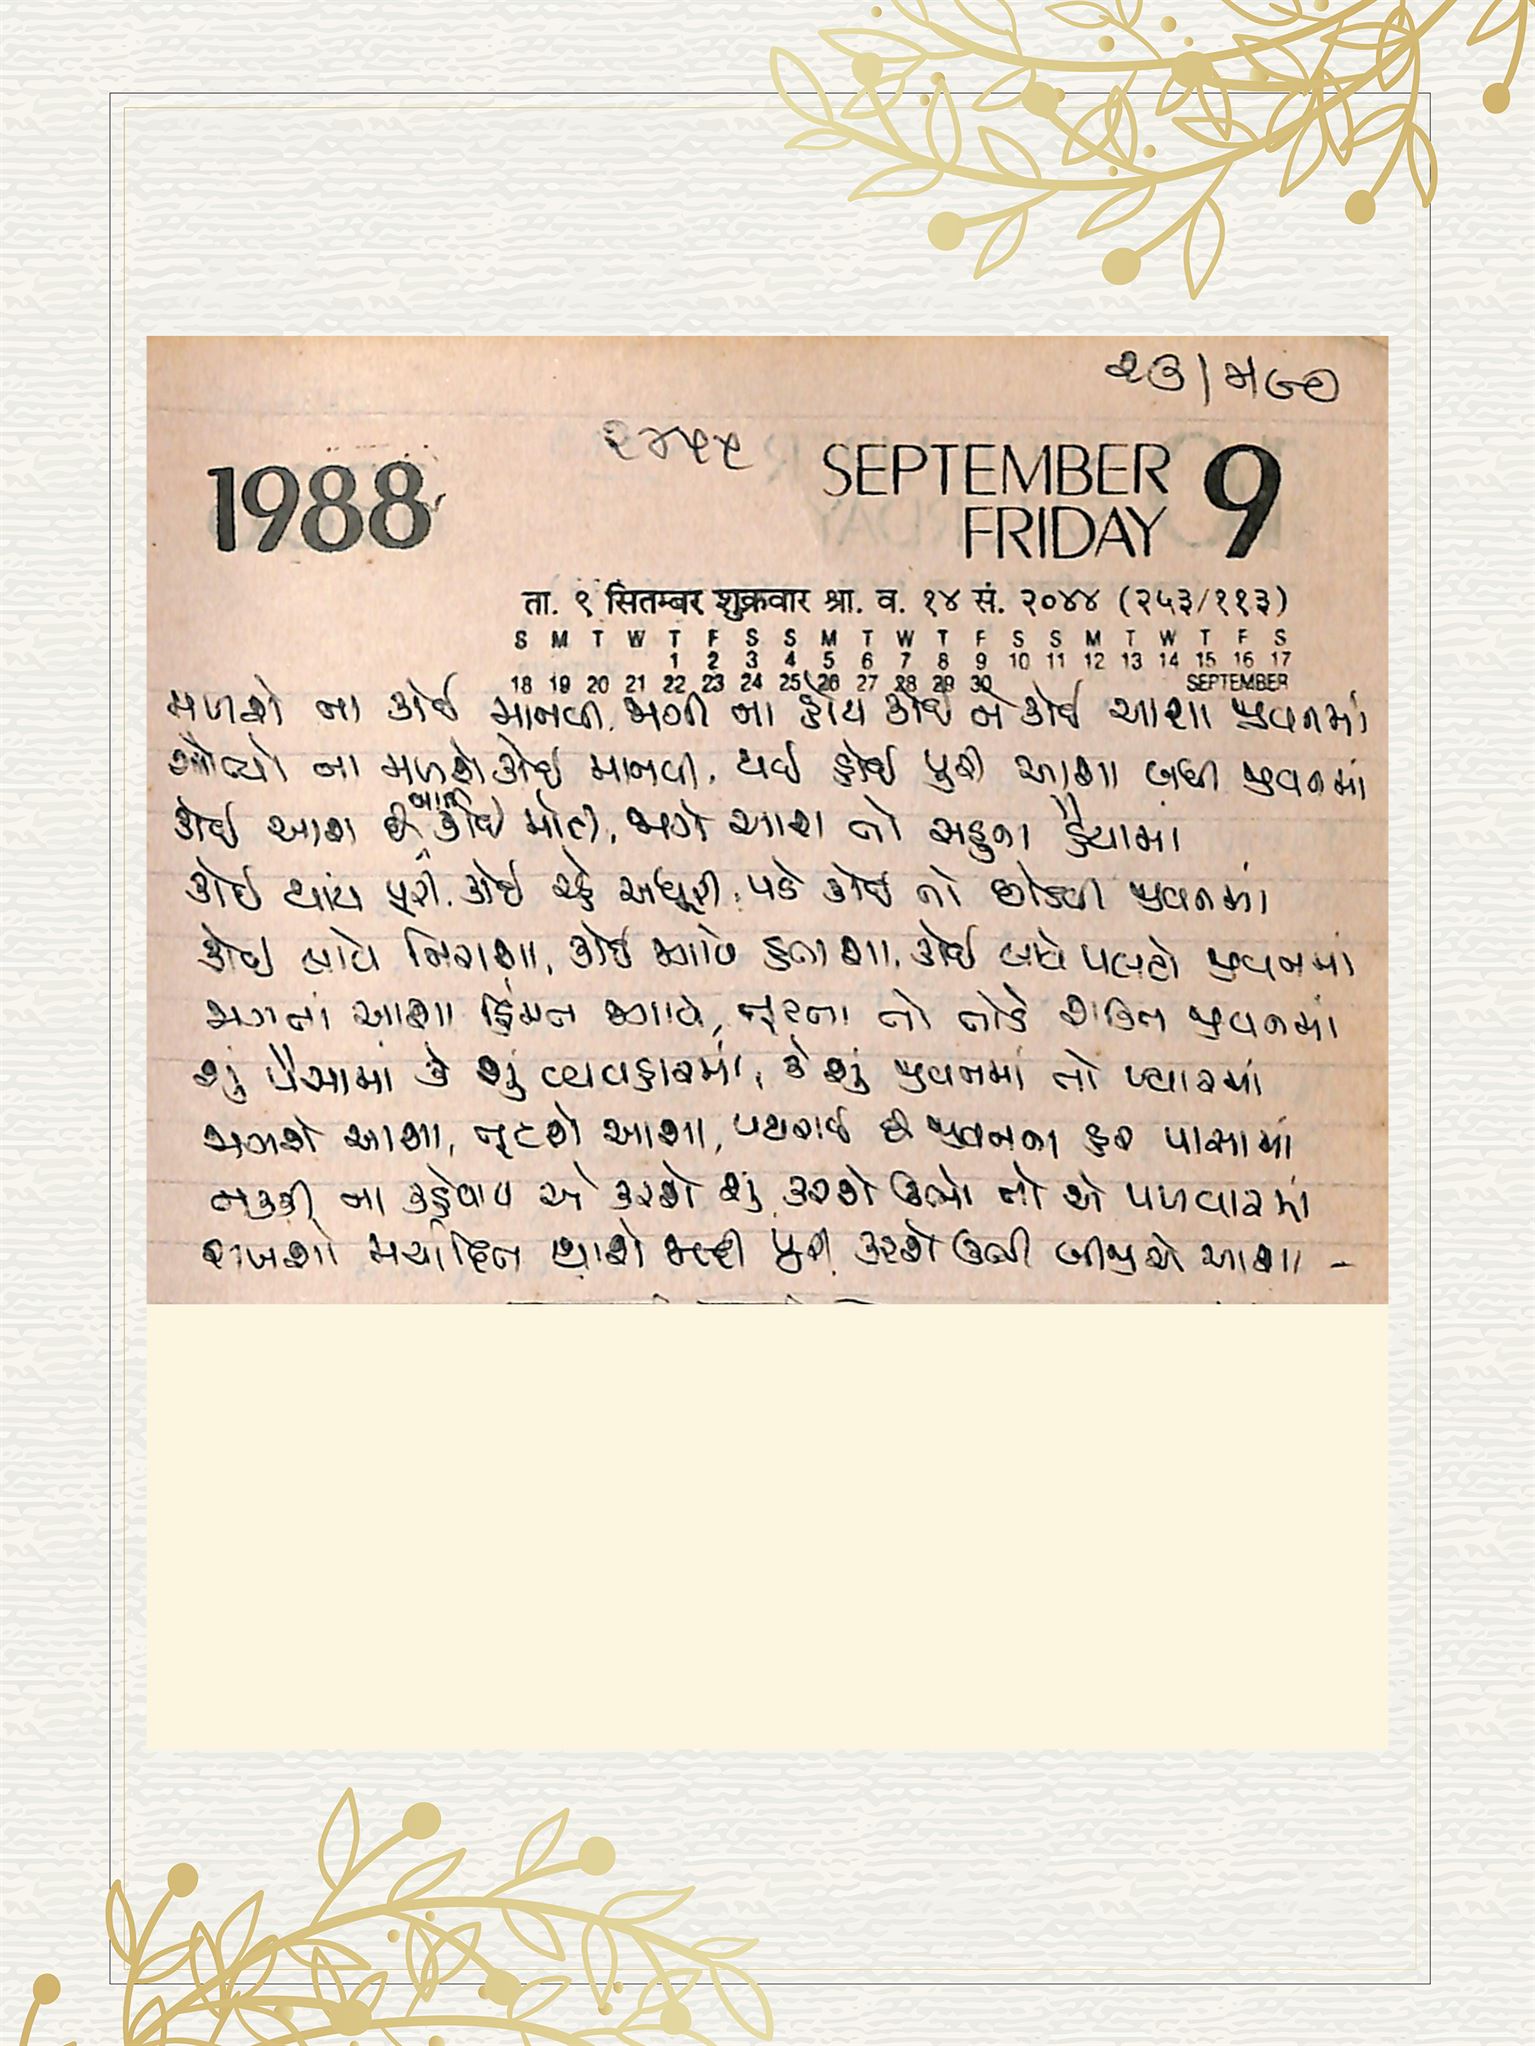 ૨૩/મ૯૦
૨૪૫૫
1988
SEPTEMBER
FRIDAY 9
ता. ९ सितम्बर शुक्रवार श्रा. व. १४ सं. २०४४ (२५३/११३)
S M T W T F S S M T W T F S S M T W T F S
1 2 3 4 5 6 7 8 9 10 11 12 13 14 15 16 17
18 19 20 21 22 23 24 25 26 27 28 29 30 SEPTEMBER
મળશે ના કોઈ માનવી, જાગી ના હોય કોઈ ને કોઈ આશા જીવનમાં
ના મળશે કોઈ માનવી, થઈ હોઈ પુરી આશા બધી જીવનમાં
કોઈ આશા છે કોઈ મોટી, જાગે આશા તો સહુના હૈયામાં
કોઈ થાય પૂરી, કોઈ રહે અધૂરી, પડે કોઈ તો છોડવી જીવનમાં
કોઈ લાવે નિરાશા, કોઈ આપે હતાશા, કોઈ લાવે પલટો જીવનમાં
જાગતાં આશા હિંમત આવે, તૂટતા તો તોડે શક્તિ જીવનમાં
શું પૈસામાં કે શું વ્યવહારમાં, કે શું જીવનમાં તો પ્યારમાં
જાગશે આશા, તૂટશે આશા, પથરાઈ છે જીવનના હર પાસામાં
નક્કી ના કહેવાય એ કરશે શું, કરશે ઉભો તો એ પળવારમાં
રાખશો મર્યાદિત થાશે જલ્દી પુરી, કરશે ઉભી બીજી એ આશા -